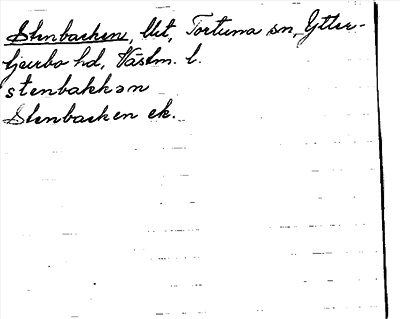 Stenbacken, lht, Tortuna sn, Ytter-
tjurbo hd, Västm. l.
stenbakkən
Stenbacken ek.